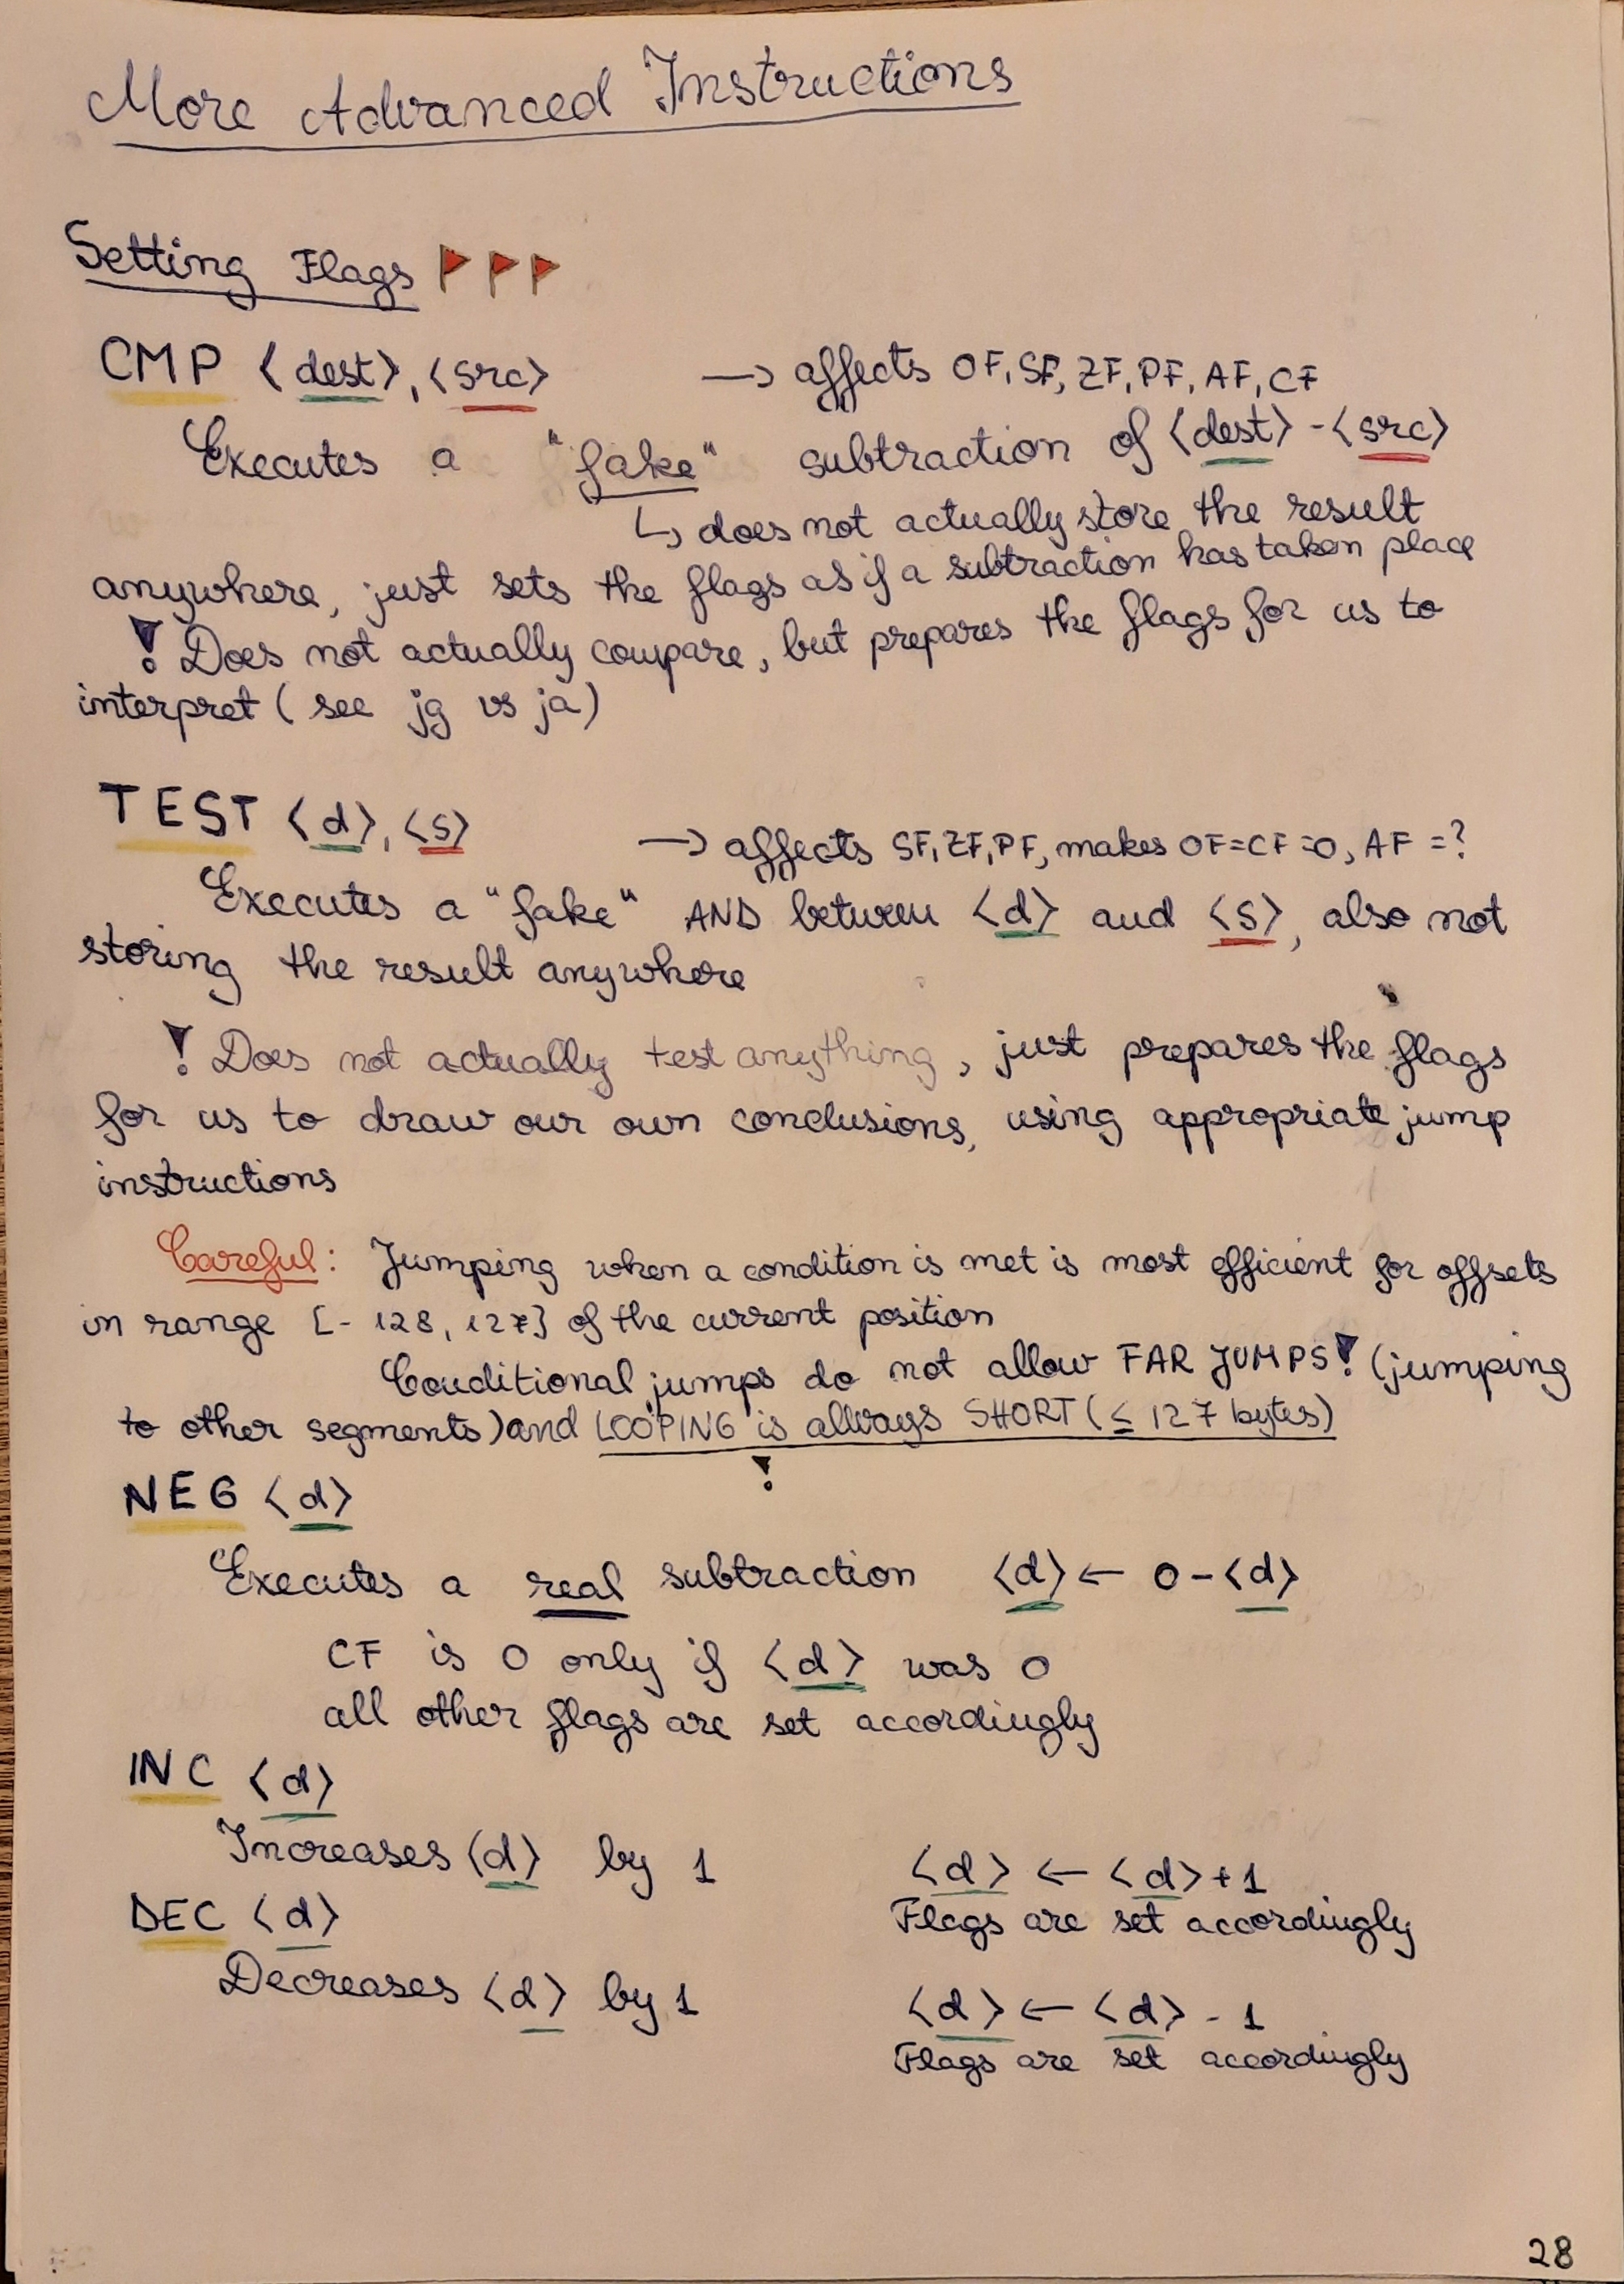 More Advanced Instructions
Setting Flags
CMP <dest>, <src> → affects OF, SF, ZF, PF, AF, CF
Executes a "fake" subtraction of <dest> - <src>
↳ does not actually store the result
anywhere, just sets the flags as if a subtraction has taken place
! Does not actually compare, but prepares the flags for us to
interpret ( see jg vs ja)
TEST <d>, <s> → affects SF, ZF, PF, makes OF=CF=0, AF =?
Executes a "fake" AND between <d> and <s>, also not
storing the result anywhere
! Does not actually test anything, just prepares the flags
for us to draw our own conclusions, using appropriate jump
instructions
Careful: Jumping when a condition is met is most efficient for offsets
in range [- 128, 127] of the current position
Conditional jumps do not allow FAR JUMPS! (jumping
to other segments) and LOOPING is always SHORT (≤ 127 bytes)
!
NEG <d>
Executes a real subtraction <d> ← 0 - <d>
CF is 0 only if <d> was 0
all other flags are set accordingly
INC <d>
Increases <d> by 1 <d> ← <d> + 1
Flags are set accordingly
DEC <d>
Decreases <d> by 1 <d> ← <d> - 1
Flags are set accordingly
28